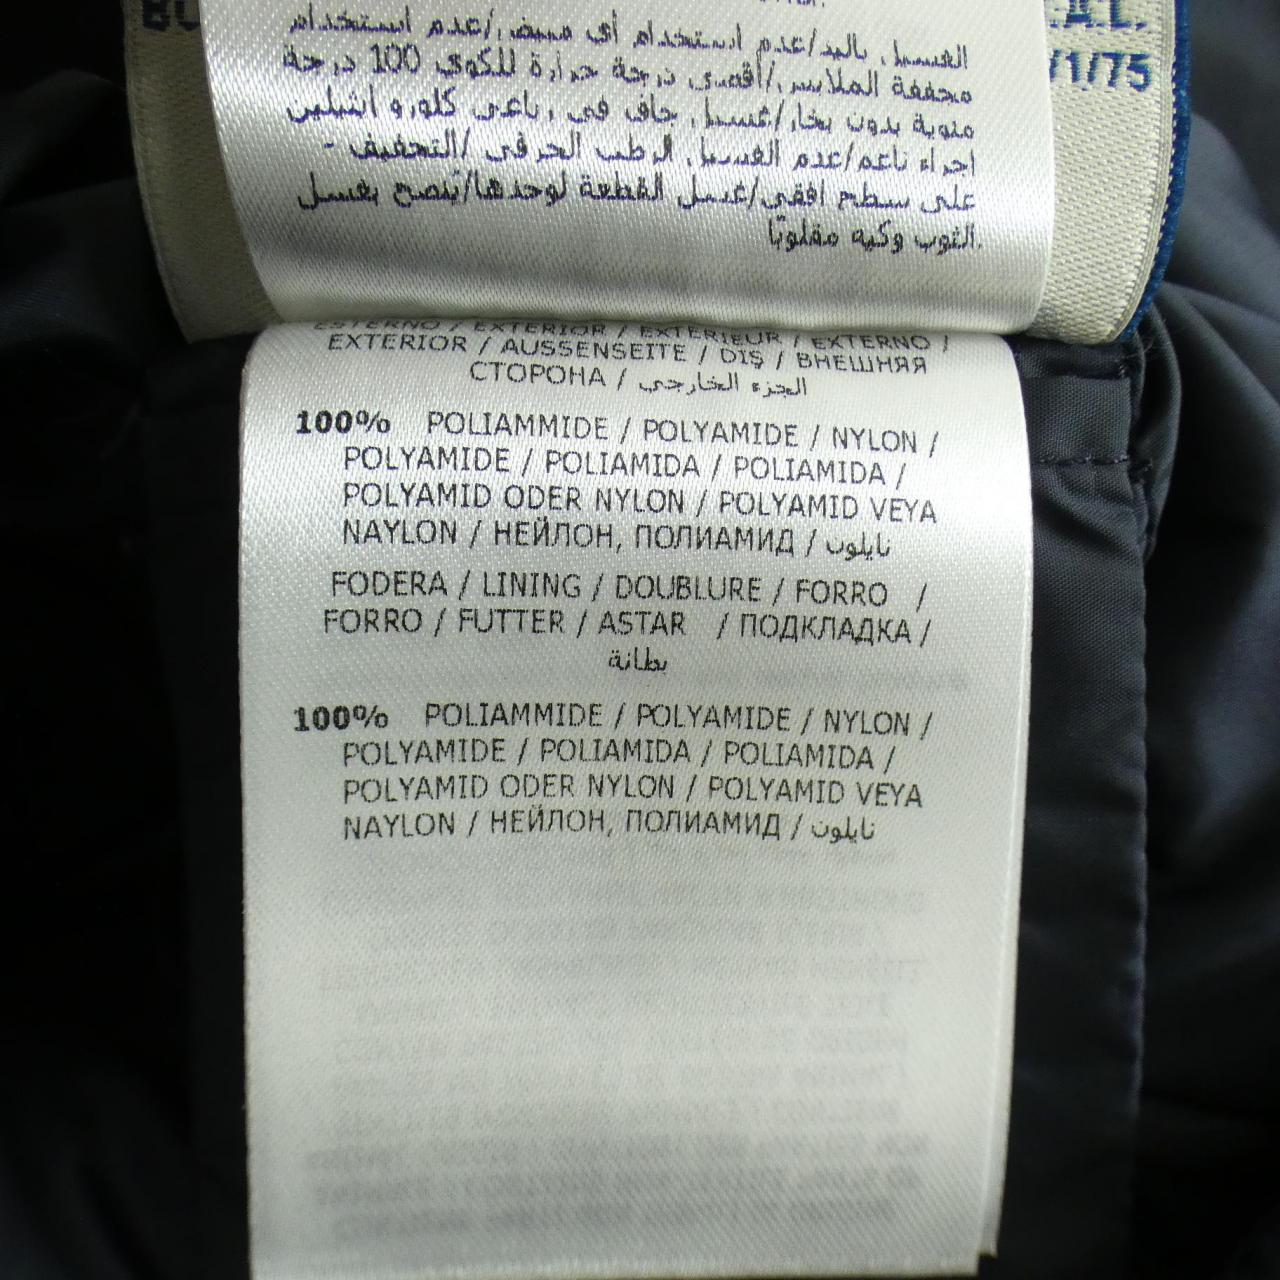 .A.L.
/1/75
الغسيل باليد/عدم استخدام أي مبيض/عدم استخدام
مجففة الملابس/أقصى درجة حرارة للكوي 100 درجة
مئوية بدون بخار/غسيل جاف في رباعي كلورو اثيلين
اجراء ناعم/عدم الغسيل الرطب الحرفي /التجفيف -
على سطح افقي/غسل القطعة لوحدها/يُنصح بغسل
الثوب وكيه مقلوبًا.
ESTERNO / EXTERIOR / EXTÉRIEUR / EXTERNO /
EXTERIOR / AUSSENSEITE / DIŞ / ВНЕШНЯЯ
СТОРОНА / الجزء الخارجي
100% POLIAMMIDE / POLYAMIDE / NYLON /
POLYAMIDE / POLIAMIDA / POLIAMIDA /
POLYAMID ODER NYLON / POLYAMID VEYA
NAYLON / НЕЙЛОН, ПОЛИАМИД / نايلون
FODERA / LINING / DOUBLURE / FORRO /
FORRO / FUTTER / ASTAR / ПОДКЛАДКА /
بطانة
100% POLIAMMIDE / POLYAMIDE / NYLON /
POLYAMIDE / POLIAMIDA / POLIAMIDA /
POLYAMID ODER NYLON / POLYAMID VEYA
NAYLON / НЕЙЛОН, ПОЛИАМИД / نايلون